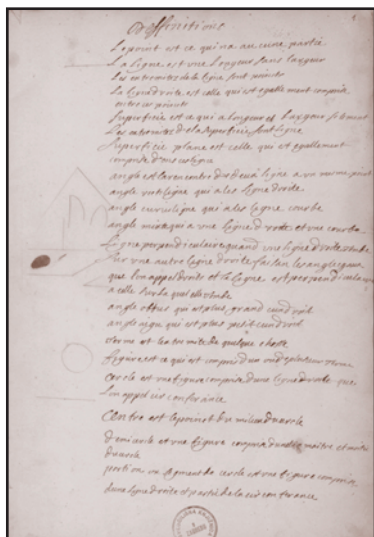 Deffinitions
Le point est ce qui na aucune partie
La Ligne est une Longeur sans largeur
Les extremites de la Ligne sont points
La Ligne droite est celle qui est egallement comprise
entre ses points
Superficie est ce qui a longeur et Largeur seulement
Les extremites de la superficie sont Ligne
Superficie plane est celle qui est egallement
comprise ses Ligne
angle est la rencontre de deux Ligne a un mesme point
angle rectiligne qui a les Ligne droite
angle curviligne qui a les Ligne courbe
angle mixte qui a une Ligne droite et une courbe
Ligne perpendiculaire quand une ligne droite tombe
sur une autre Ligne droite faisan les angle egaux
que lon appel droits et la Ligne est perpendiculaire
a celle sur la quelle tombe
angle obtus qui est plus grand cun droit
angle aigu qui est plus petit cun droit
terme est lextremite de quelque chose
figure est ce qui est compris dun ou de plusieur terme
Cercle est une figure comprise dune Ligne que
Lon appel circonferance
Centre est le point du milieu du cercle
demi cercle est une figure comprise du diametre et moitie
du cercle
portion ou segment de cercle est une figure comprise
dune Ligne droite et partie de la circonferance